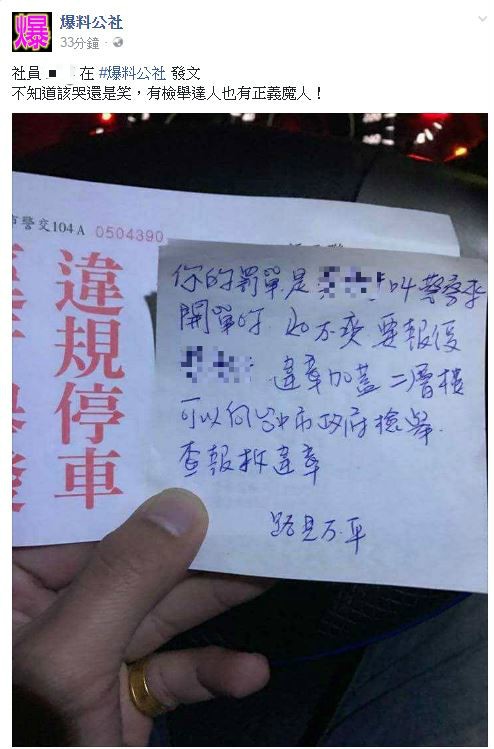 爆
爆料公社
33分鐘
社員 在 #爆料公社 發文
不知道該哭還是笑，有檢舉達人也有正義魔人！
市警交104A 0504390
違規停車
你的罰單是 叫警察來
開單的 不爽要報復
違章加蓋二層樓
可以向台中市政府檢舉.
查報拆違章
路見不平